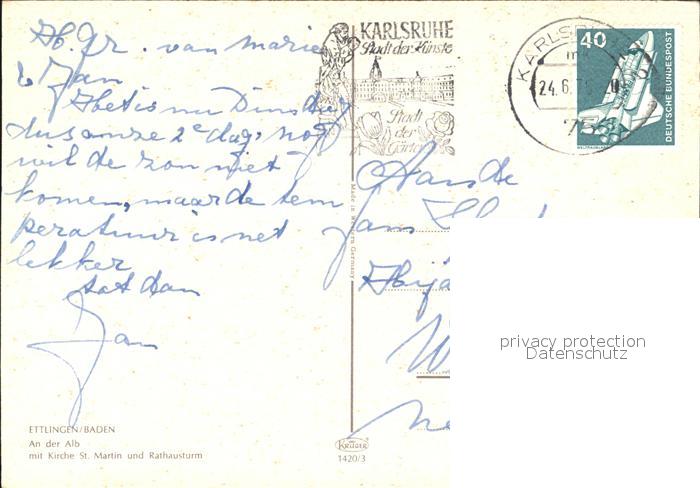 H. Gr. van Marie
& Jan
Het is nu Dinsdag
dus onze 2e dag, nog
wil de zon niet
komen, maar de tem
peratuur is net
lekker
tot dan
Jan
KARLSRUHE
Stadt der Künste
Stadt
der
Gärten
KARLSRUHE
24.6.
75
40
DEUTSCHE BUNDESPOST
Aan de
Jans
Made in Western Germany
privacy protection
Datenschutz
ETTLINGEN/BADEN
An der Alb
mit Kirche St. Martin und Rathausturm
KRÜGER
1420/3